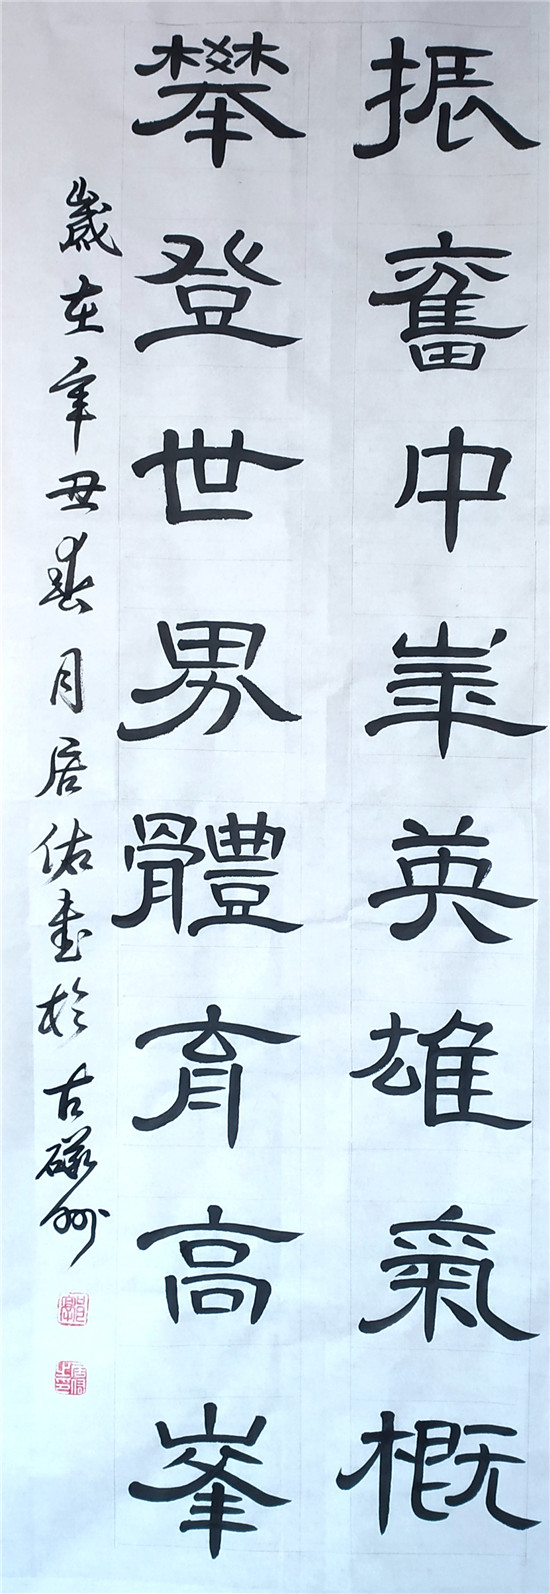 振奮中華英雄氣概
攀登世界體育高峯
歲在辛丑春月居佑書於古磁州